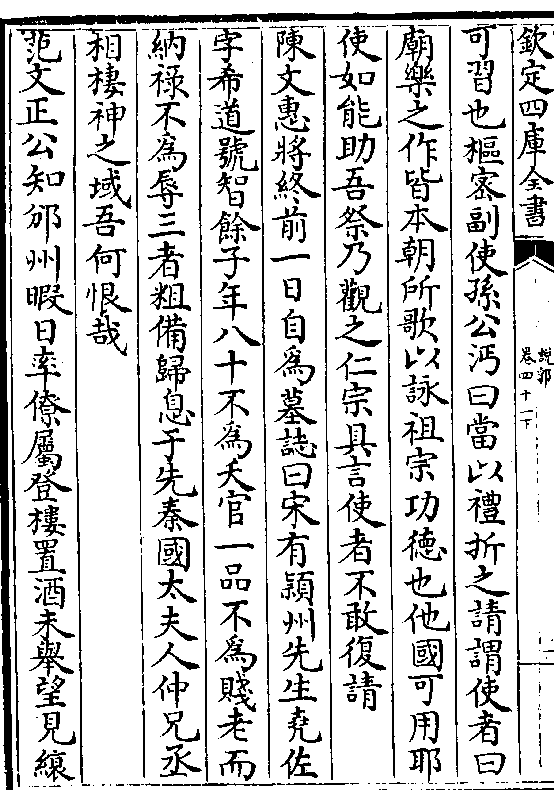 欽定四庫全書
說郛
卷四十一下
可習也樞密副使孫公沔曰當以禮折之請謂使者曰
廟樂之作皆本朝所歌以詠祖宗功德也他國可用耶
使如能助吾祭乃觀之仁宗具言使者不敢復請
陳文惠將終前一日自為墓誌曰宋有潁州先生堯佐
字希道號智餘子年八十不為夭官一品不為賤老而
納祿不為辱三者粗備歸息于先秦國太夫人仲兄丞
相棲神之域吾何恨哉
范文正公知邠州暇日率僚屬登樓置酒未舉望見縗